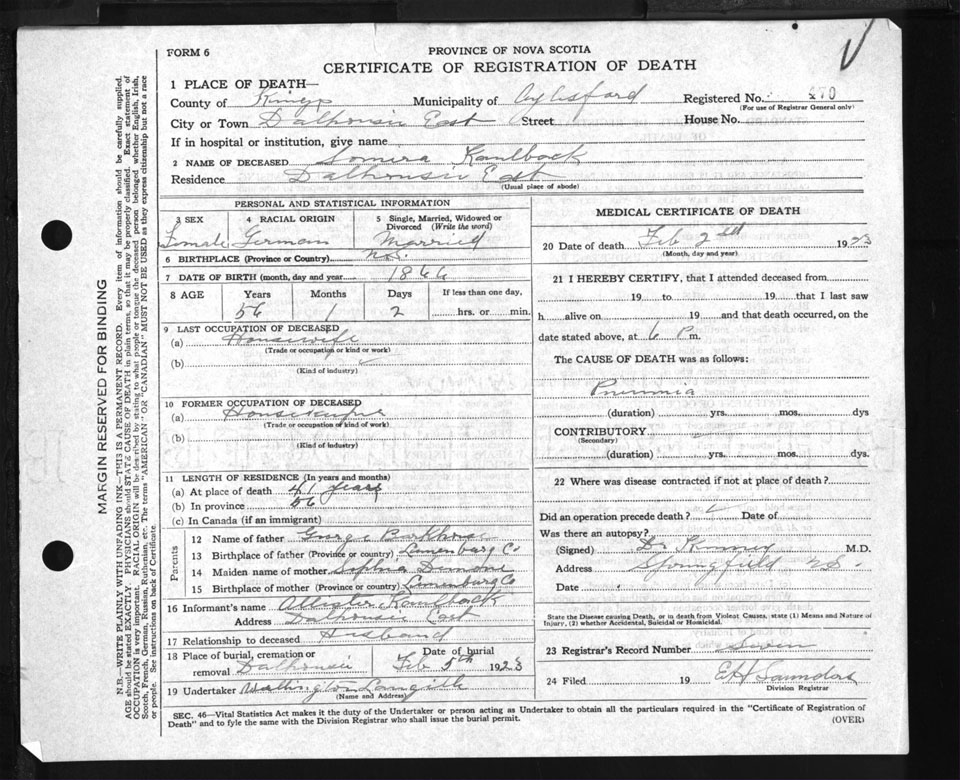 FORM 6
PROVINCE OF NOVA SCOTIA
CERTIFICATE OF REGISTRATION OF DEATH
MARGIN RESERVED FOR BINDING
N.B.—WRITE PLAINLY WITH UNFADING INK—THIS IS A PERMANENT RECORD. Every item of information should be carefully supplied.
AGE should be stated EXACTLY. PHYSICIANS should STATE CAUSE OF DEATH in plain terms, so that it may be properly classified. Exact statement of
OCCUPATION is very important. RACIAL ORIGIN will be described by stating to what people or tongue the deceased person belonged whether English, Irish,
Scotch, French, German, Russian, Ruthenian, etc. The terms "AMERICAN" OR "CANADIAN" MUST NOT BE USED as they express citizenship but not a race
or people. See instructions on back of Certificate.
1 PLACE OF DEATH—
County of Kings Municipality of Aylesford Registered No. 470
(For use of Registrar General only)
City or Town Dalhousie East Street House No.
If in hospital or institution, give name
2 NAME OF DECEASED Kaulback
Residence Dalhousie East
(Usual place of abode)
PERSONAL AND STATISTICAL INFORMATION
3 SEX Female
4 RACIAL ORIGIN German
5 Single, Married, Widowed or Divorced (Write the word) Married
6 BIRTHPLACE (Province or Country) N.S.
7 DATE OF BIRTH (month, day and year) 1866
8 AGE Years Months Days If less than one day,
56 1 2 hrs. or min.
9 LAST OCCUPATION OF DECEASED
(a) Housewife
(Trade or occupation or kind or work)
(b)
(Kind of industry)
10 FORMER OCCUPATION OF DECEASED
(a)
(Trade or occupation or kind of work)
(b)
(Kind of industry)
11 LENGTH OF RESIDENCE (In years and months)
(a) At place of death 41 years
(b) In province 56
(c) In Canada (if an immigrant)
Parents
12 Name of father George
13 Birthplace of father (Province or country) Lunenburg Co
14 Maiden name of mother Sophia
15 Birthplace of mother (Province or country) Lunenburg Co
16 Informant's name Kaulback
Address Dalhousie East
17 Relationship to deceased Husband
18 Place of burial, cremation or removal Dalhousie Date of burial Feb 5th 1923
19 Undertaker Langille
(Name and Address)
MEDICAL CERTIFICATE OF DEATH
20 Date of death Feb 2nd 1923
(Month, day and year)
21 I HEREBY CERTIFY, that I attended deceased from
19 to 19 that I last saw
h alive on 19 and that death occurred, on the
date stated above, at 6 P m.
The CAUSE OF DEATH was as follows:
Pnumnia
(duration) yrs. mos. dys
CONTRIBUTORY
(Secondary)
(duration) yrs. mos. dys.
22 Where was disease contracted if not at place of death?
Did an operation precede death? Date of
Was there an autopsy?
(Signed) Dr Kinney M.D.
Address Springfield N.S.
Date
State the Disease causing Death, or in death from Violent Causes, state (1) Means and Nature of
Injury, (2) whether Accidental, Suicidal or Homicidal.
23 Registrar's Record Number Seven
24 Filed 19 E H Saunders
Division Registrar
SEC. 46—Vital Statistics Act makes it the duty of the Undertaker or person acting as Undertaker to obtain all the particulars required in the "Certificate of Registration of
Death" and to fyle the same with the Division Registrar who shall issue the burial permit.
(OVER)